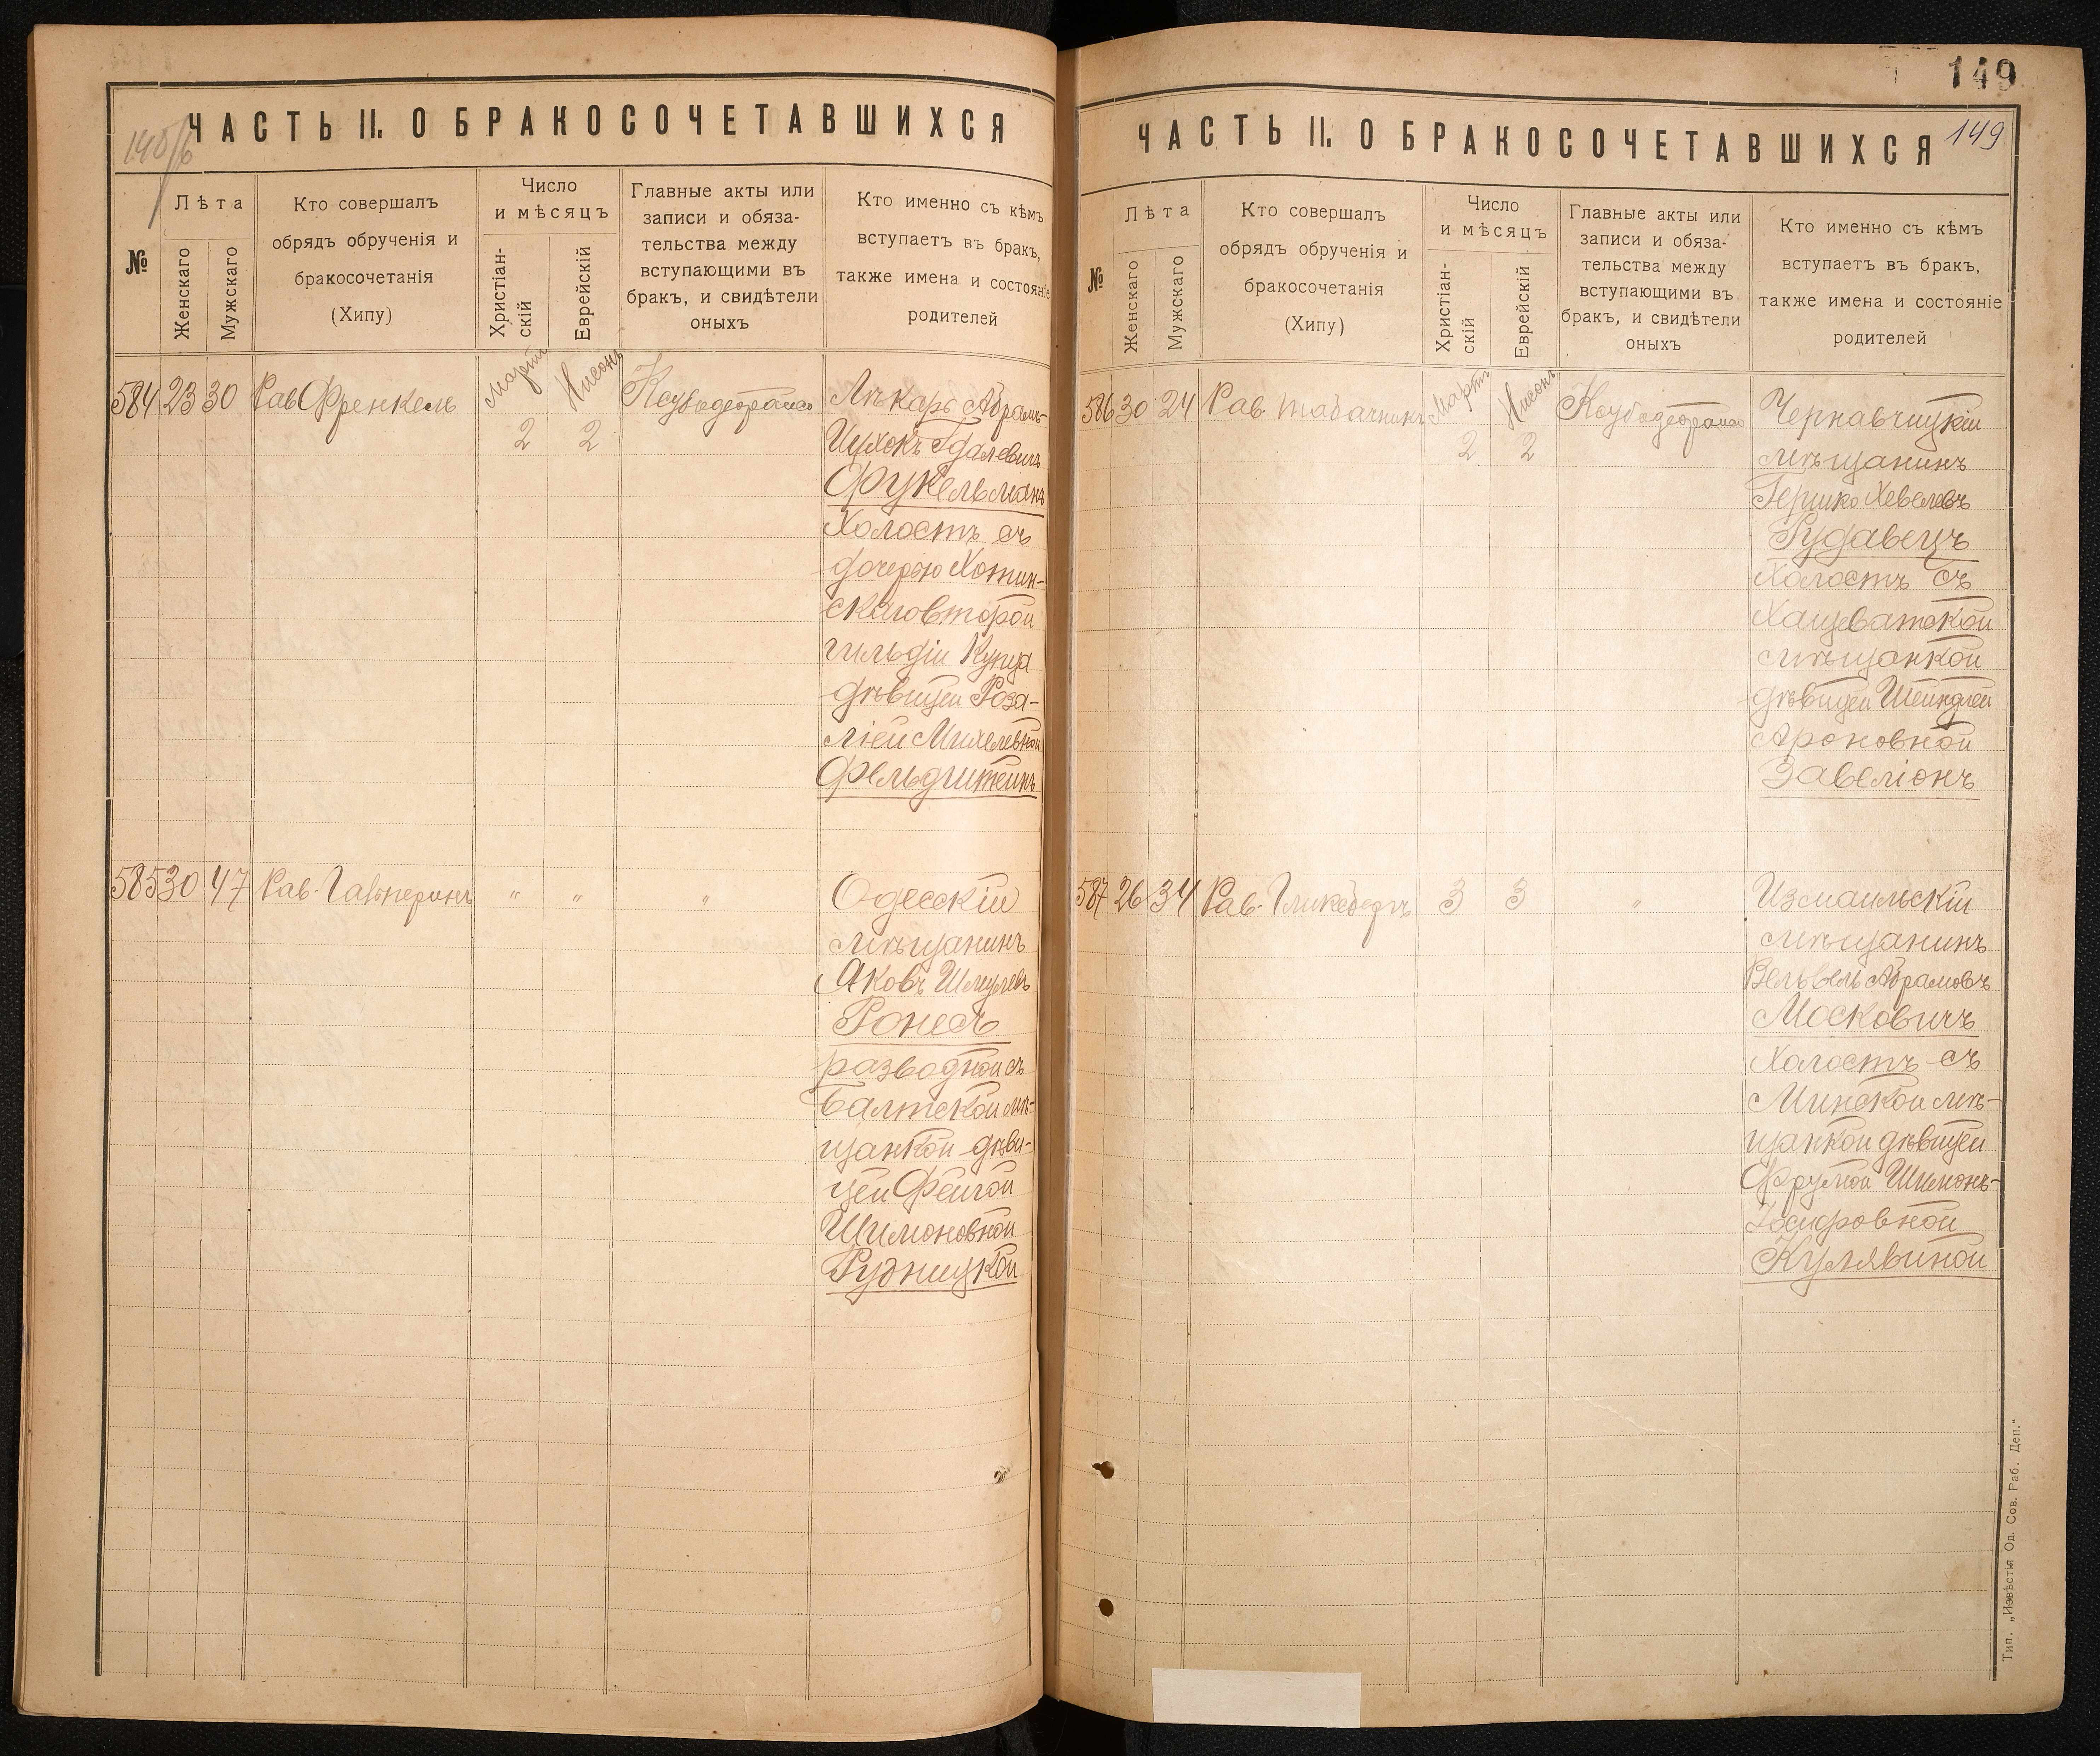 ЧАСТЬ II. О БРАКОСОЧЕТАВШИХСЯ
№
Лѣта
Женскаго
Мужскаго
Кто совершалъ
обрядъ обрученія и
бракосочетанія
(Хипу)
Число
и мѣсяцъ
Христіан-
скій
Еврейскій
Главные акты или
записи и обяза-
тельства между
вступающими въ
бракъ, и свидѣтели
оныхъ
Кто именно съ кѣмъ
вступаетъ въ бракъ,
также имена и состояніе
родителей
584 23 30 Рав Френкель
Мартъ 2
Нисонъ 2
Лѣкарь Абрамъ-
Цухокъ Гдалевичъ
Фукельманъ
Холостъ съ
дочерью Хотин-
скаго второй
гильдіи Купца
дѣвицей Роза-
ліей Михелевной
Фельдштейнъ
585 30 47 Рав. Гальперинъ " " "
Одесскій
мѣщанинъ
Яковъ Шмулевъ
Ронесъ
разводной съ
Балтской мѣ-
щанкой дѣви-
цей Фейгой
Шимоновной
Рудницкой
149
ЧАСТЬ II. О БРАКОСОЧЕТАВШИХСЯ 149
№
Лѣта
Женскаго
Мужскаго
Кто совершалъ
обрядъ обрученія и
бракосочетанія
(Хипу)
Число
и мѣсяцъ
Христіан-
скій
Еврейскій
Главные акты или
записи и обяза-
тельства между
вступающими въ
бракъ, и свидѣтели
оныхъ
Кто именно съ кѣмъ
вступаетъ въ бракъ,
также имена и состояніе
родителей
586 30 24 Рав. Табачникъ
Мартъ 2
Нисонъ 2
Чернавчицкій
мѣщанинъ
Гершко Хевелевъ
Рудавецъ
Холостъ съ
Хащеватской
мѣщанкой
дѣвицей Шейндлей
Ароновной
Завеліонъ
587 26 34 Рав. Гликсбергъ 3 3 "
Измаильскій
мѣщанинъ
Вельвель Абрамовъ
Московичъ
Холостъ съ
Минской мѣ-
щанкой дѣвицей
Фрумой Шимонъ-
Кулявиной
Тип. „Извѣстія Од. Сов. Раб. Деп."